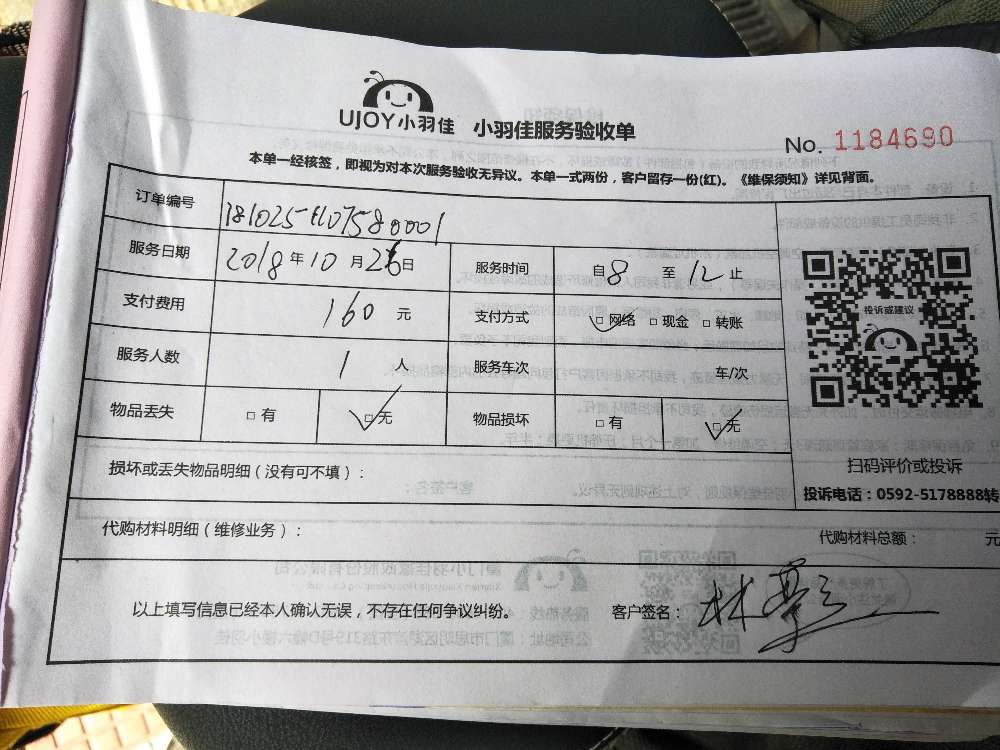 UJOY小羽佳 小羽佳服务验收单
No. 1184690
本单一经核签，即视为对本次服务验收无异议。本单一式两份，客户留存一份(红)。《维保须知》详见背面。
订单编号
服务日期 2018年10月26日 服务时间 自8至12止
支付费用 160元 支付方式 □网络 □现金 □转账
服务人数 1人 服务车次 车/次
物品丢失 □有 □无 物品损坏 □有 □无
投诉或建议
扫码评价或投诉
投诉电话：0592-5178888转
损坏或丢失物品明细（没有可不填）：
代购材料明细（维修业务）： 代购材料总额： 元
以上填写信息已经本人确认无误，不存在任何争议纠纷。 客户签名：